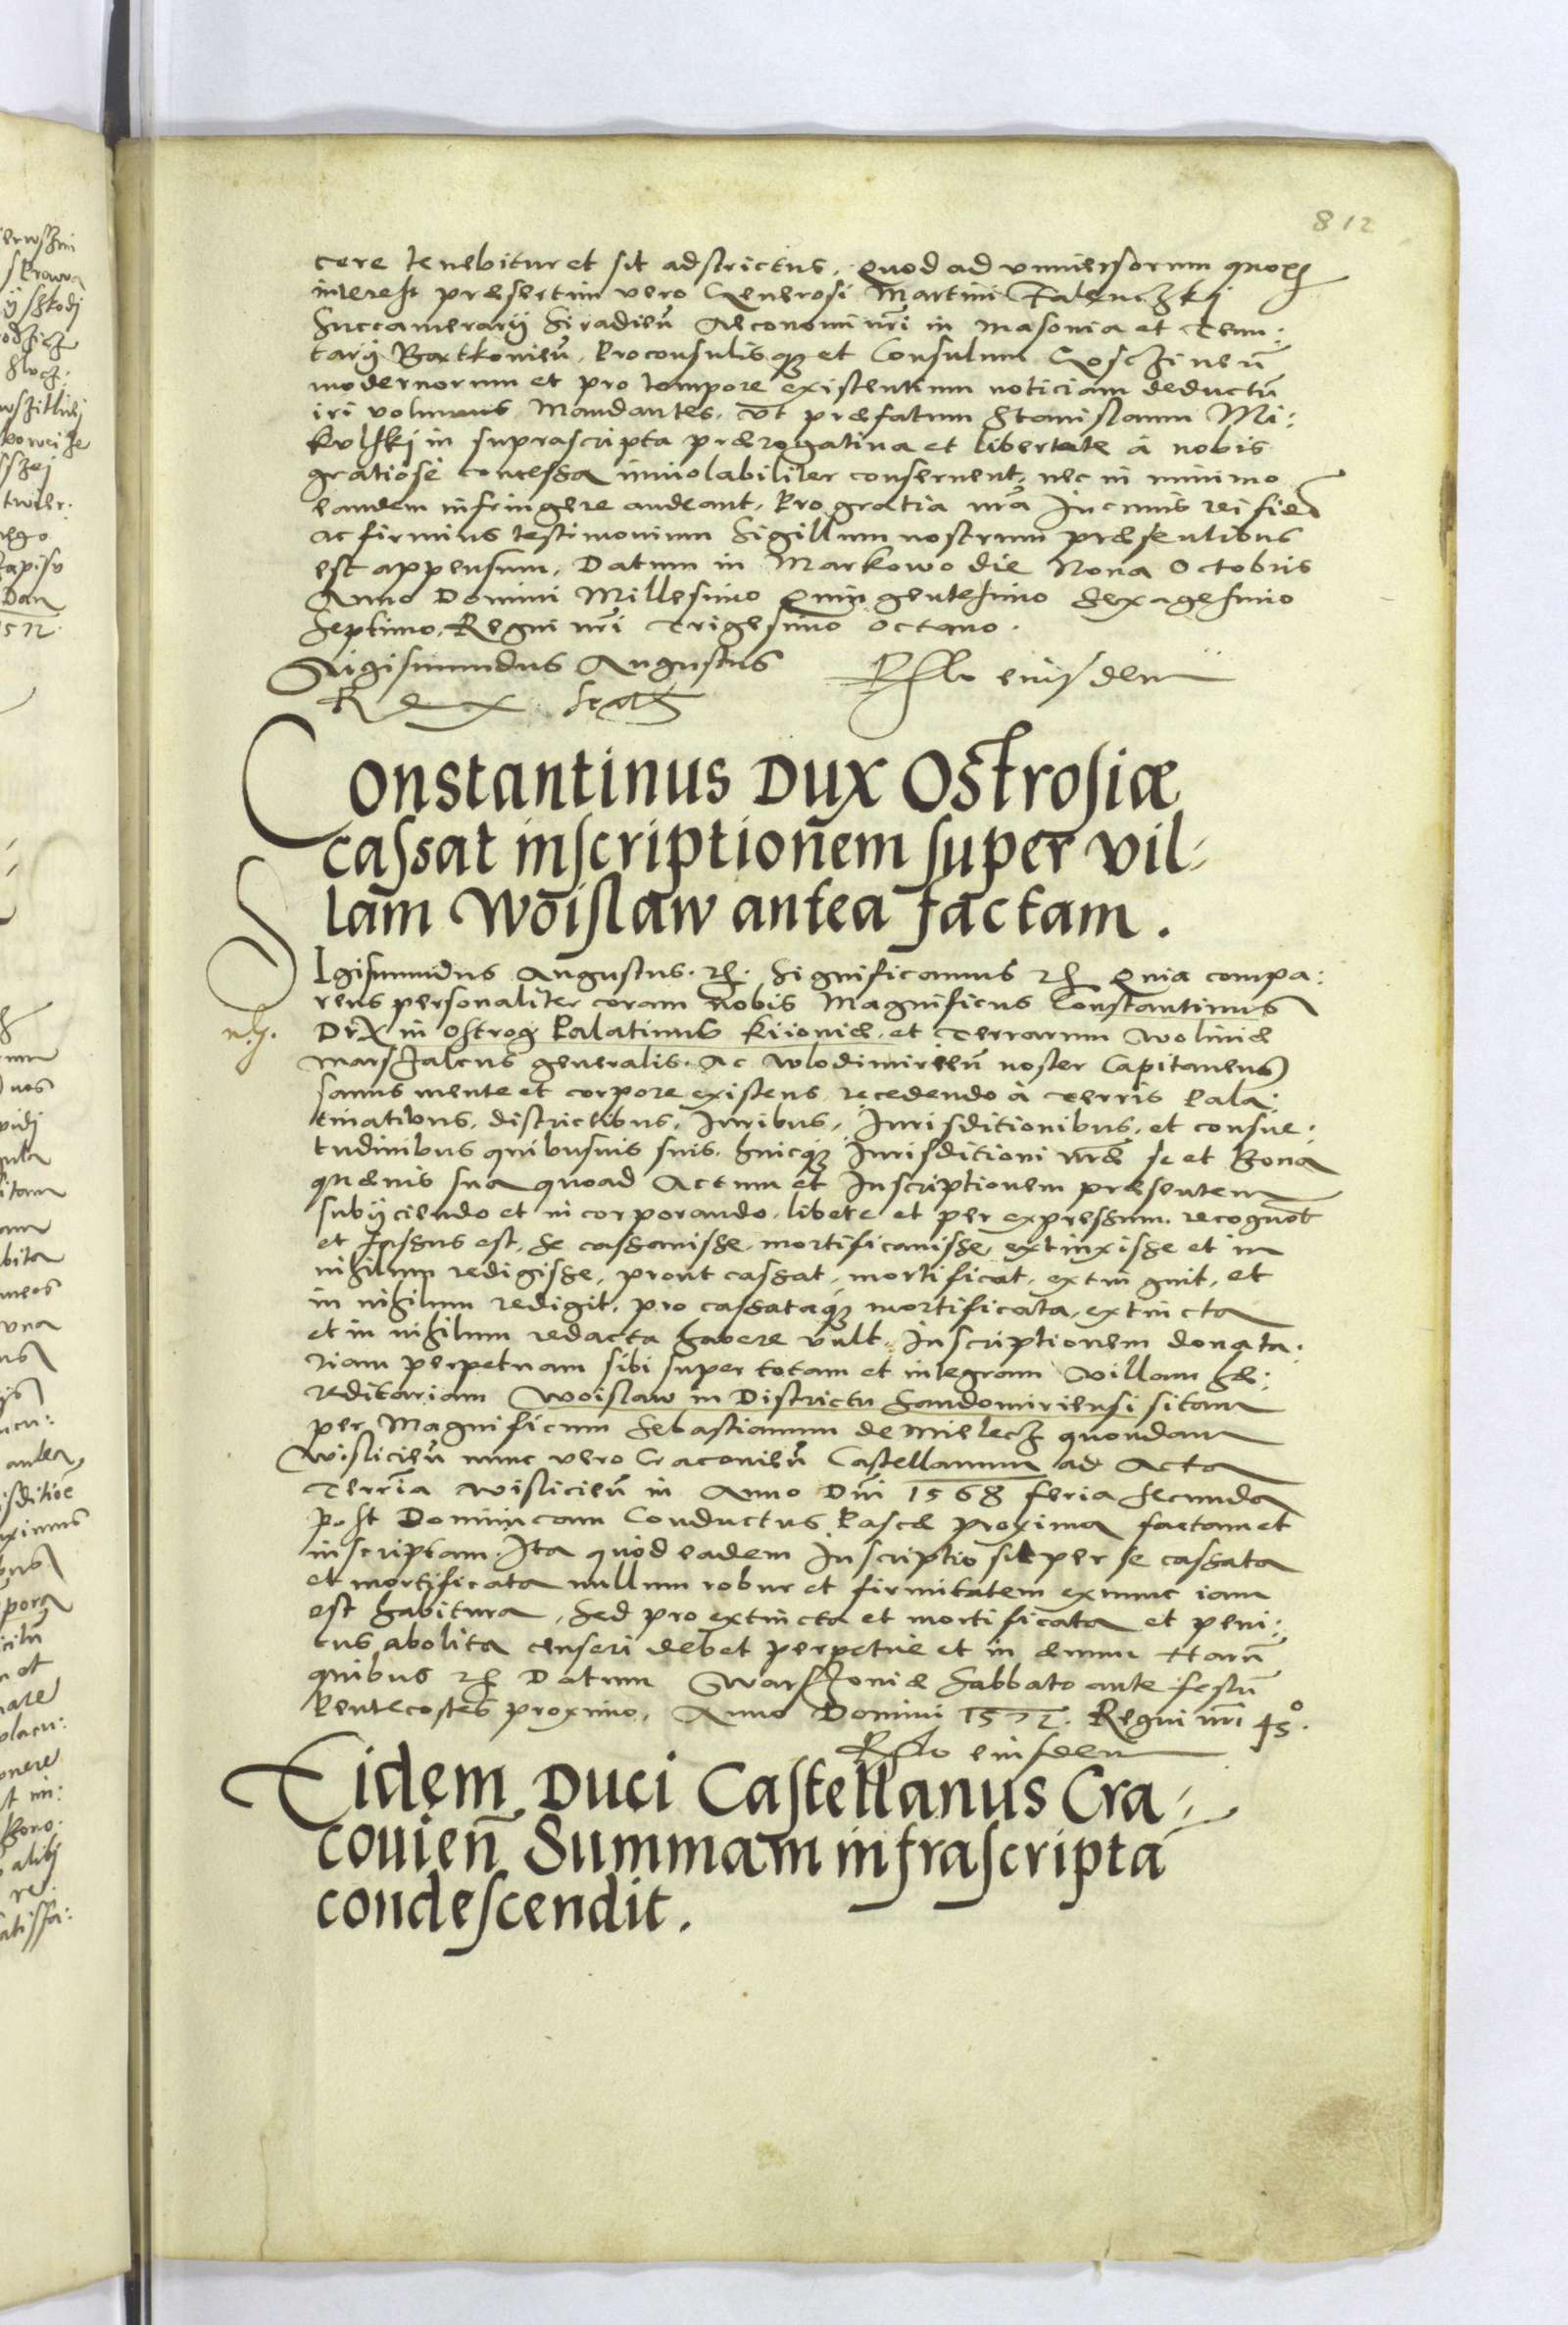 812
cere tenebitur et sit adstrictus. Quod ad vniuersorum quorū
interest præsertim vero Generosi Martini Falenczkj
Succamerarij Siradień Aeconomi nrī in Masouia et Tenu:
tarij Bartkouień, Proconsulisq; et Consulum Gosczineń
modernorum et pro tempore existentium noticiam deductū
iri volumus Mandantes. vt præfatum Stanislaum Mi:
kulskj in suprascripta prærogatiua et libertate à nobis
gratiosè concessa inuiolabiliter conseruent, nec in minimo
eandem infringere audeant. Pro gratia nrā In cuius rei fidē
ac firmius testimonium Sigillum nostrum præsentibus
est appensum. Datum in Markowo die Nona Octobris
Anno Domini Millesimo Quingentesimo Sexagesimo
Septimo. Regni nrī Trigesimo octauo.
Sigismundus Augustus eiusdem
Rex
Constantinus Dux Ostrosiæ
cassat inscriptionem super vil-
lam Woislaw antea factam.
SIgismundus Augustus. etc. Significamus etc Quia compa:
rens personaliter coram nobis Magnificus Constantinus
Dux in Ostrog Palatinus Kiiouiæ. et Terrarum Woliniæ
Marsalcus generalis. Ac Wlodimirień noster Capitaneus
sanus mente et corpore existens, recedendo à Terris Pala:
tinatibus, districtibus, Iuribus, Iurisditionibus, et consue:
tudinibus quibusuis suis. huicq; Iurisditioni nræ se et Bona
quæuis sua quoad Actum et Inscriptionem præsentem
subijciendo et incorporando. libere et per expressum. recognot
et fassus est, se cassauisse, mortificauisse, extinxisse et in
nihilum redigisse, prout cassat, mortificat, extinguit, et
in nihilum redigit, pro cassataq; mortificata, extincta
et in nihilum redacta habere vult. Inscriptionem donata:
riam perpetuam sibi super totam et integram Villam hæ:
reditariam Woislaw in Districtu Sandomiriensi sitam
per Magnificum Sebastianum de Mielecz quondam
Wislicień nunc vero Cracouień Castellanum ad Acta
Terrīa Wislicień in Anno Dnī 1568 feria secunda
post Dominicam Conductus Pascæ proxima factam et
inscriptam. Ita quod eadem Inscriptio sit per se cassata
et mortificata nullum robur et firmitatem exnunc iam
est habitura, sed pro extincta et mortificata et peni:
tus abolita censeri debet perpetuè et in æuum Harū
quibus etc Datum Warszouiæ Sabbato ante festū
Pentecostes proximo, Anno Domini 1572. Regni nrī 43°.
eiusdem
Eidem Duci Castellanus Cra-
couień Summam infrascriptā
condescendit.